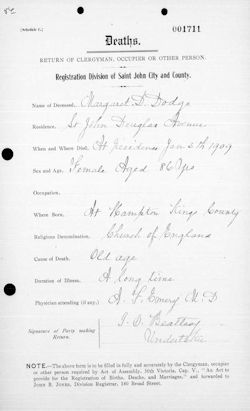 52
001711
[Schedule C.]
Deaths.
RETURN OF CLERGYMAN, OCCUPIER OR OTHER PERSON.
Registration Division of Saint John City and County.
Name of Deceased, Margaret D. Dodge
Residence, St John Douglas Avenue
When and Where Died, At Residence Jan 6th 1909
Sex and Age, Female Aged 86 yrs
Occupation,
Where Born, At Hampton Kings County
Religious Denomination, Church of England
Cause of Death, Old age
Duration of Illness, A long time
Physician attending (if any), A. F. Emery M D
Signature of Party making Return.
Undertaker
NOTE.—The above form is to be filled in fully and accurately by the Clergyman, occupier or other person required by Act of Assembly, 50th Victoria, Cap. V., "An Act to provide for the Registration of Births, Deaths, and Marriages," and forwarded to JOHN B. JONES, Division Registrar, 140 Broad Street.